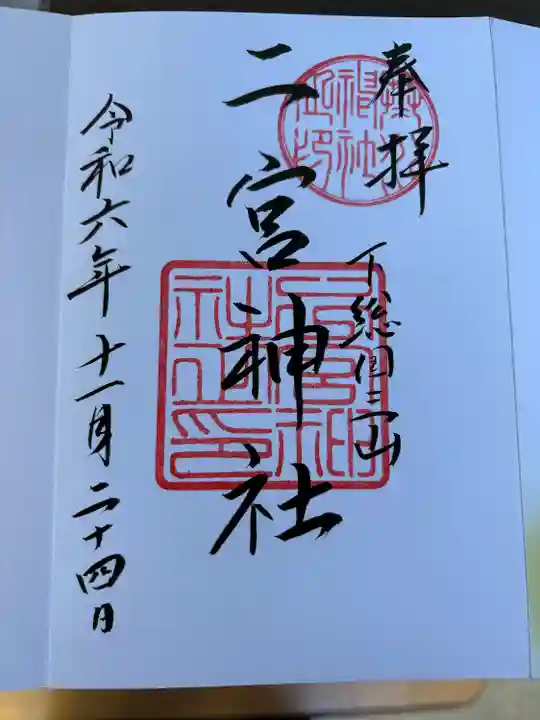 奉拝
下総国三山
二宮神社
令和六年十一月二十四日